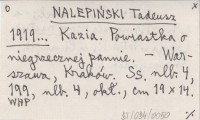 NALEPIŃSKI Tadeusz
1919... Kazia. Powiastka o
niegrzecznej pannie. – War-
szawa, Kraków. Ss. nlb. 4,
199, nlb. 4, okł., cm 19 x 14.
WHP